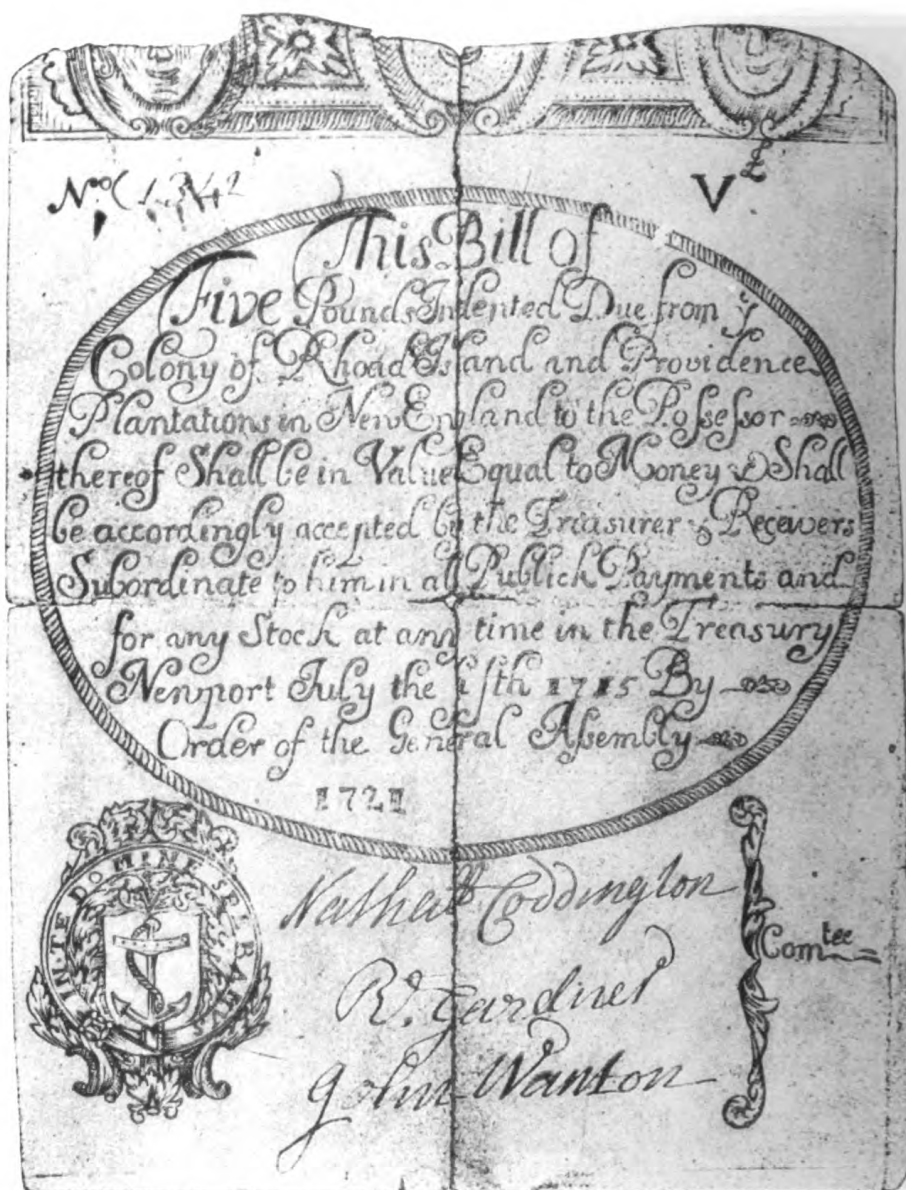 No (1342
V £
This Bill of
Five Pounds Indented Due from y
Colony of Rhoad Island and Providence
Plantations in New England to the Possessor
thereof Shall be in Value Equal to Money & Shall
be accordingly accepted by the Treasurer & Receivers
Subordinate to him in all Publick Payments and
for any Stock at any time in the Treasury
Newport July the fifth 1715 By
Order of the General Assembly
1721
IN TE DOMINE SPERAMUS
Nathall Coddington
Comtee
R. Gardner
John Wanton